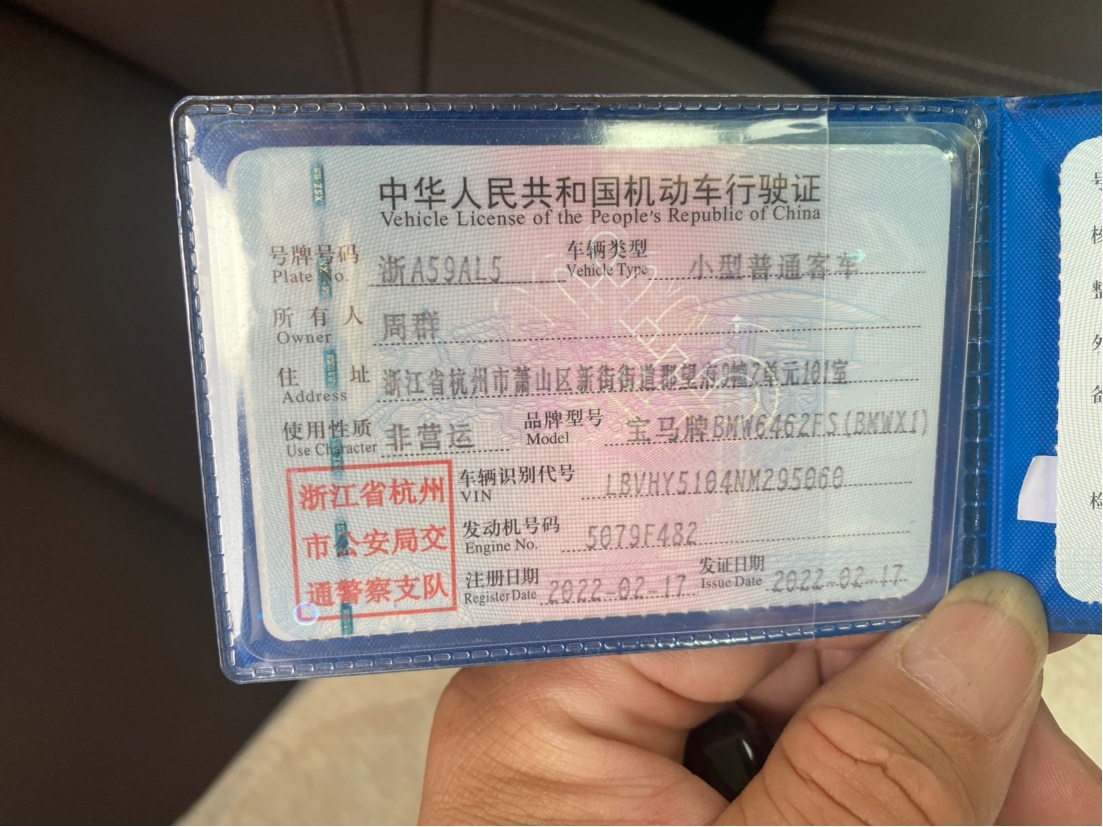 中华人民共和国机动车行驶证
Vehicle License of the People's Republic of China
号牌号码 浙A59AL5 车辆类型 小型普通客车
Plate No. Vehicle Type
所有人 周群
Owner
住址 浙江省杭州市萧山区新街街道郡望府9幢2单元101室
Address
使用性质 非营运 品牌型号 宝马牌BMW6462FS(BMWX1)
Use Character Model
浙江省杭州
市公安局交
通警察支队
车辆识别代号 LBVHY5104NM295060
VIN
发动机号码 5079F482
Engine No.
注册日期 2022-02-17 发证日期 2022-02-17
Register Date Issue Date
号
核
整
外
备
检